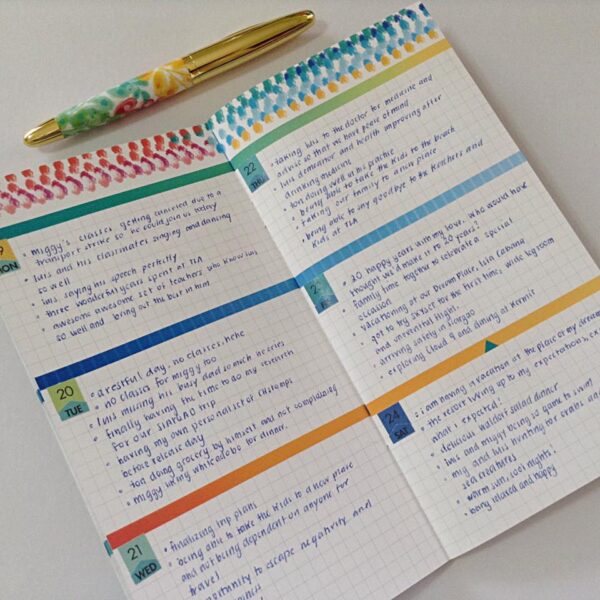 9
MON
• Miggy's classes getting canceled due to a
transport strike so he could join us today
• Luis and his classmates singing and dancing
so well
• Luis saying his speech perfectly
• three wonderful years spent at TLA
• awesome awesome set of teachers who know Luis
so well and bring out the best in him
20
TUE
• a restful day, no classes, hehe
• no classes for miggy too
• Luis missing his busy dad so much he cries
• finally having the time to do my research
for our SIARGAO trip
• having my own personal set of ctstamps
before release day
• tod doing grocery by himself and not complaining
• miggy liking white adobo for dinner.
21
WED
• finalizing trip plans
• being able to take the kids to a new place
and not being dependent on anyone for
travel
opportunity to escape negativity and
22
THU
• taking Luis to the doctor for medicine and
advice so that we have peace of mind
• Luis demeanor and health improving after
drinking medicine
• doing well in his practice
• being able to take the kids to the beach
• taking our family to a new place
• being able to say goodbye to the teachers and
kids at TLA
FRI
• 20 happy years with my love. who would have
thought we'd make it to 20 years!
• family time together to celebrate a special
occasion
• vacationing at our Dream Place, Isla Cabana
• got to try SkyJet for the first time, wide leg room
and uneventful flight.
• arriving safely in Siargao
• exploring Cloud 9 and dining at Kermit
24
SAT
• i am having a vacation at the place of my dreams
• the resort living up to my expectations,
what i expected!
• delicious waldorf salad dinner
• Luis and miggy being so game to swim
• mig and Luis hunting for crabs and
sea creatures
• warm sun, cool nights!
• being relaxed and happy